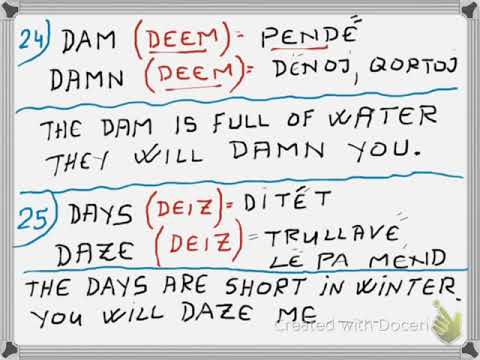 24) DAM (DEEM) = PENDË
DAMN (DEEM) = DËNOJ, QORTOJ
THE DAM IS FULL OF WATER
THEY WILL DAMN YOU.
25) DAYS (DEIZ) = DITËT
DAZE (DEIZ) = TRULLAVË
LË PA MEND
THE DAYS ARE SHORT IN WINTER.
YOU WILL DAZE ME
Created with Doceri